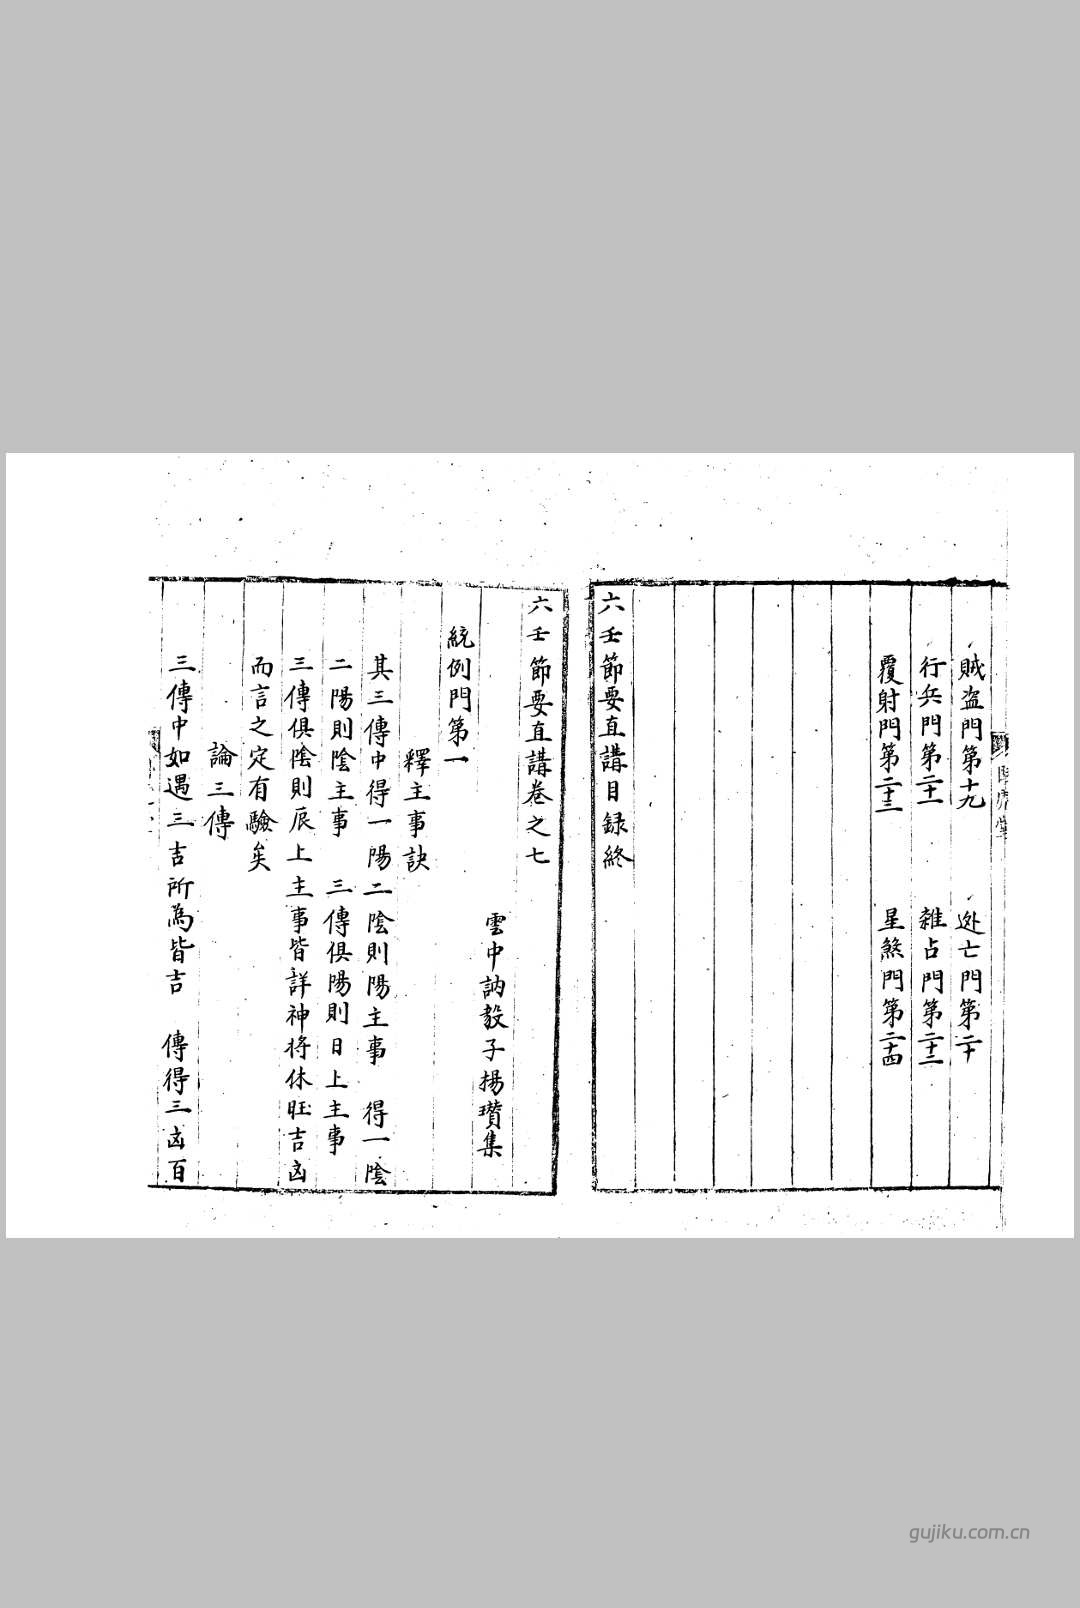 賊盜門第十九　迯亡門第二十
行兵門第二十一　雜占門第二十二
覆射門第二十三　星煞門第二十四
六壬節要直講目録終
六壬節要直講卷之七
雲中訥毅子揚瓚集
統例門第一
釋主事訣
其三傳中得一陽二陰則陽主事　得一陰
二陽則陰主事　三傳俱陽則日上主事
三傳俱陰則辰上主事皆詳神將休旺吉凶
而言之定有驗矣
論三傳
三傳中如遇三吉所為皆吉　傳得三凶百
gujiku.com.cn